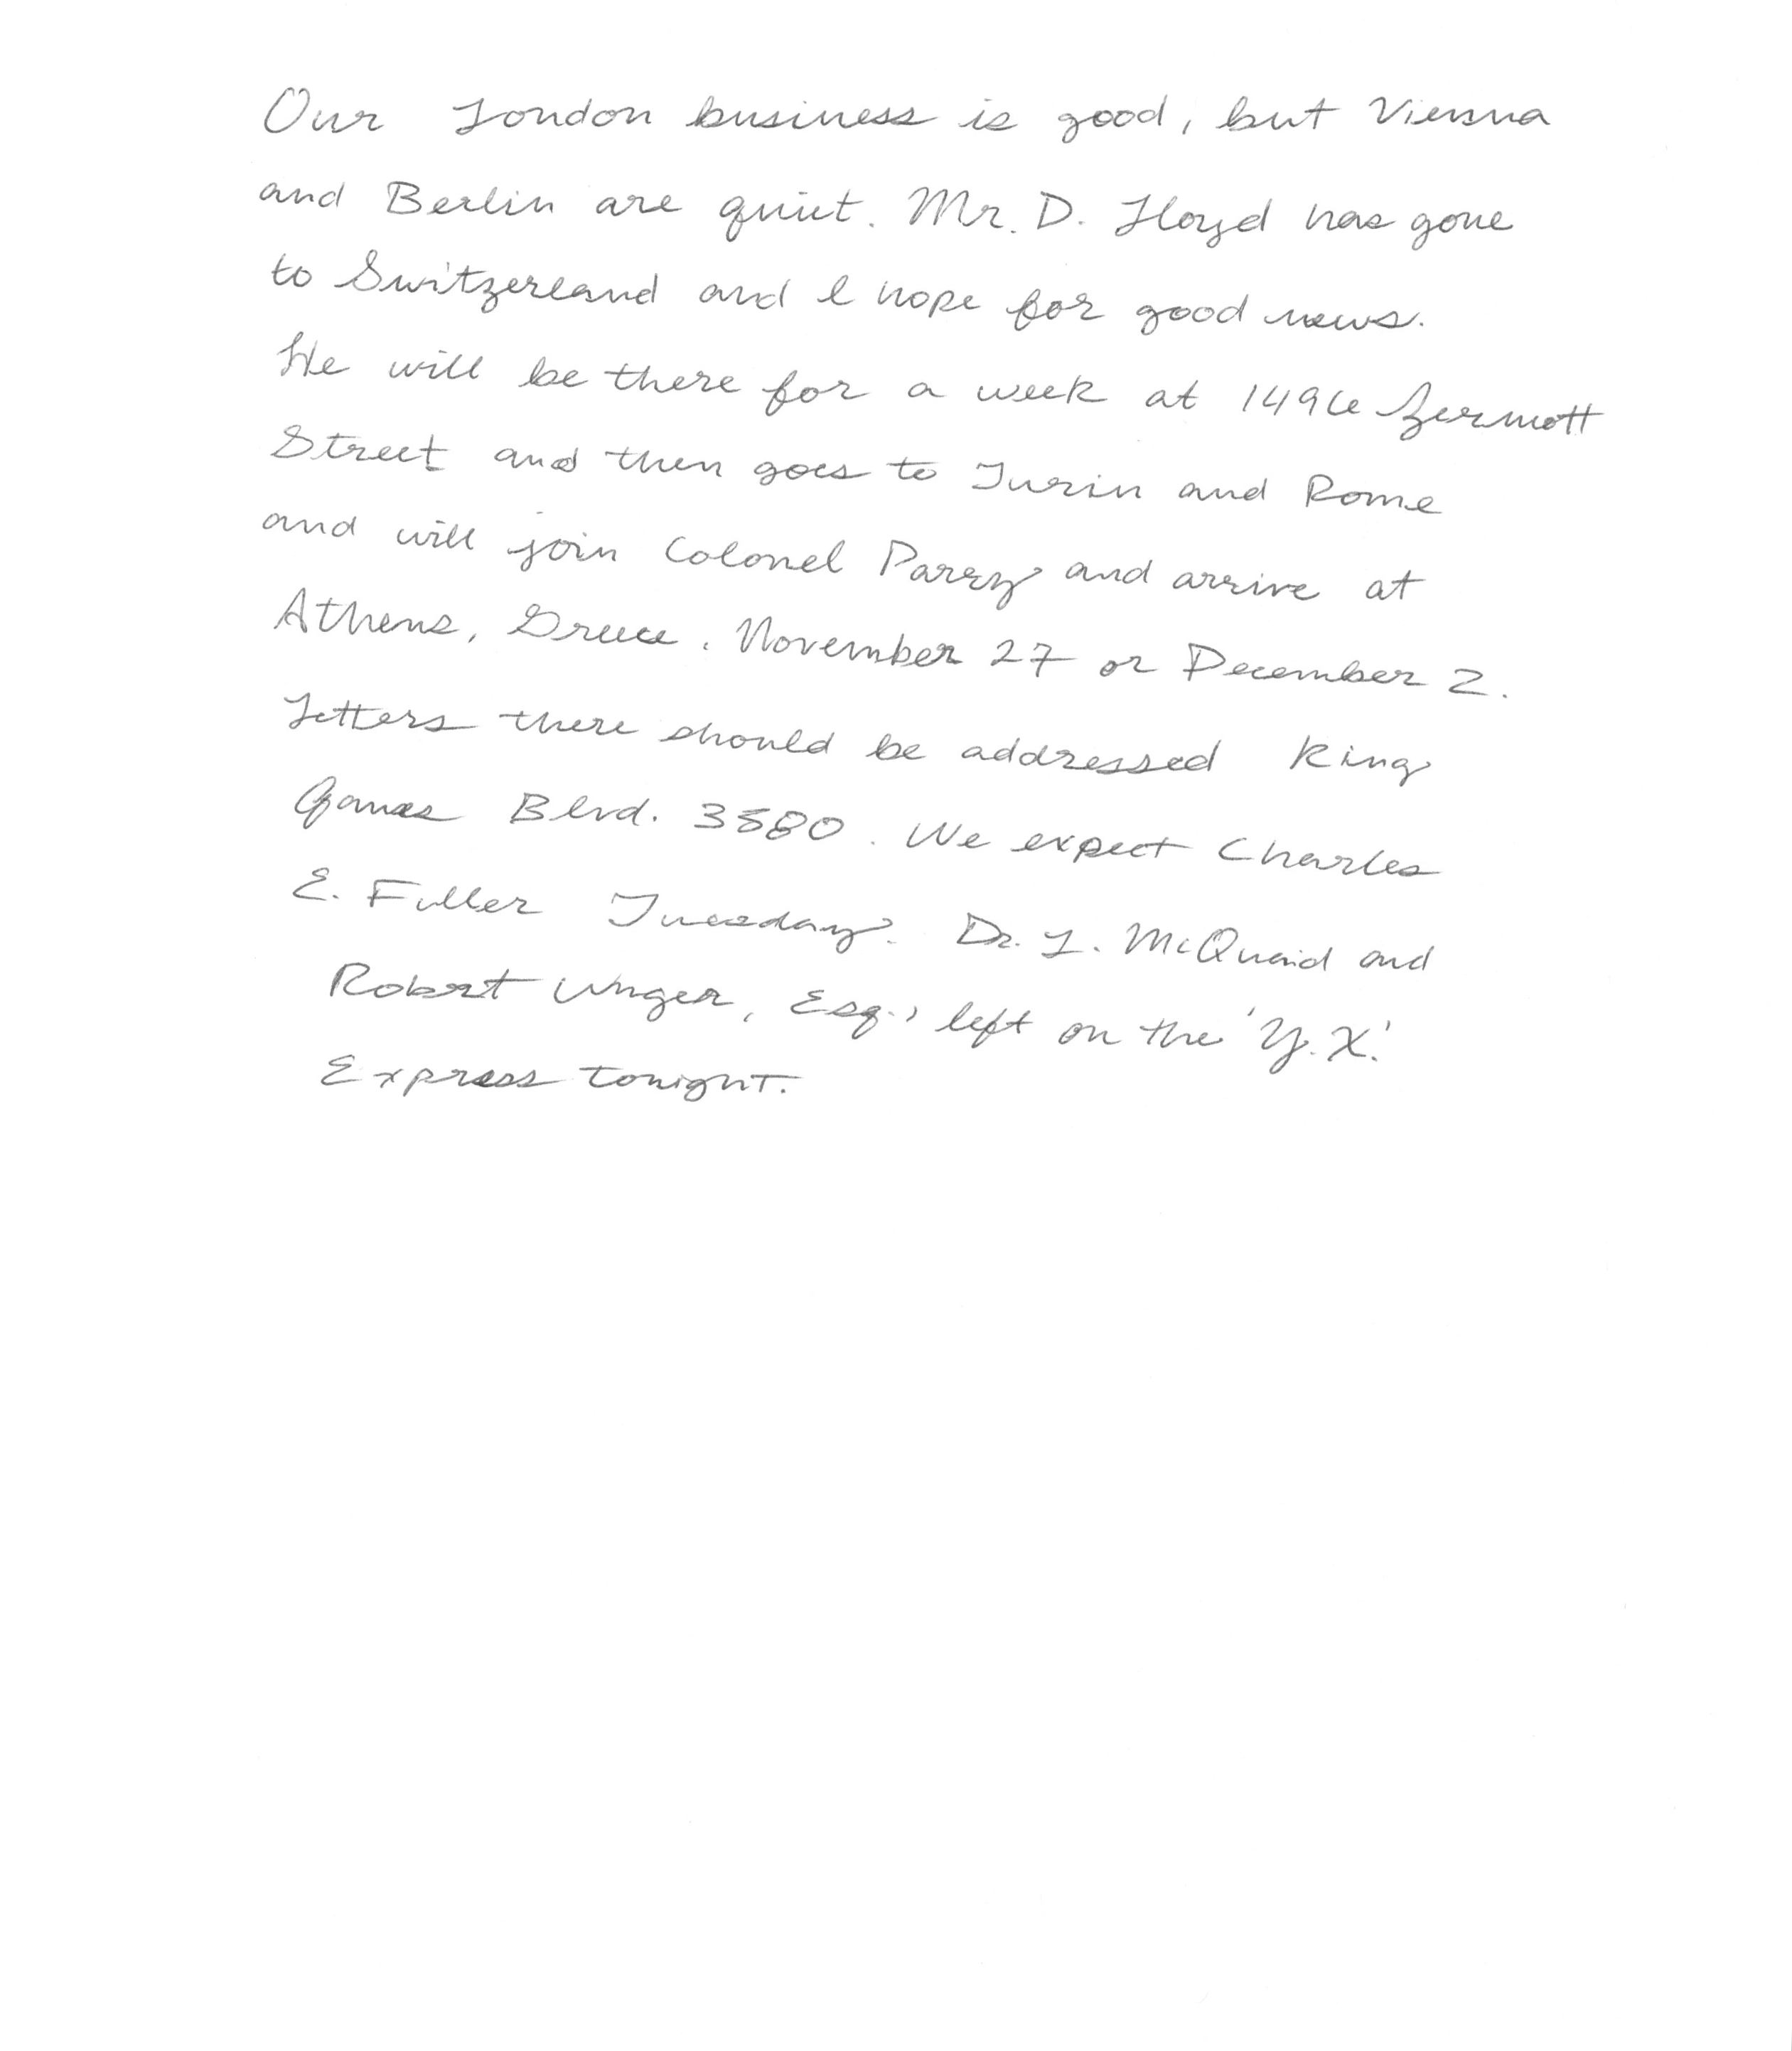 Our London business is good, but Vienna
and Berlin are quiet. Mr. D. Lloyd has gone
to Switzerland and I hope for good news.
He will be there for a week at 1496 Zermott
Street and then goes to Turin and Rome
and will join Colonel Parry and arrive at
Athens, Greece, November 27 or December 2.
Letters there should be addressed King
James Blvd. 3580. We expect Charles
E. Fuller Tuesday. Dr. L. McQuaid and
Robert Unger, Esq., left on the 'Y.X.'
Express tonight.